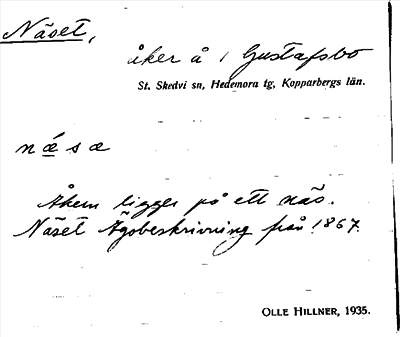 Näset,
åker å 1 Gustafsbo
St. Skedvi sn, Hedemora tg, Kopparbergs län.
nǽ̱sæ
Åkern ligger på ett näs.
Näset Ägobeskrivning från 1867.
OLLE HILLNER, 1935.